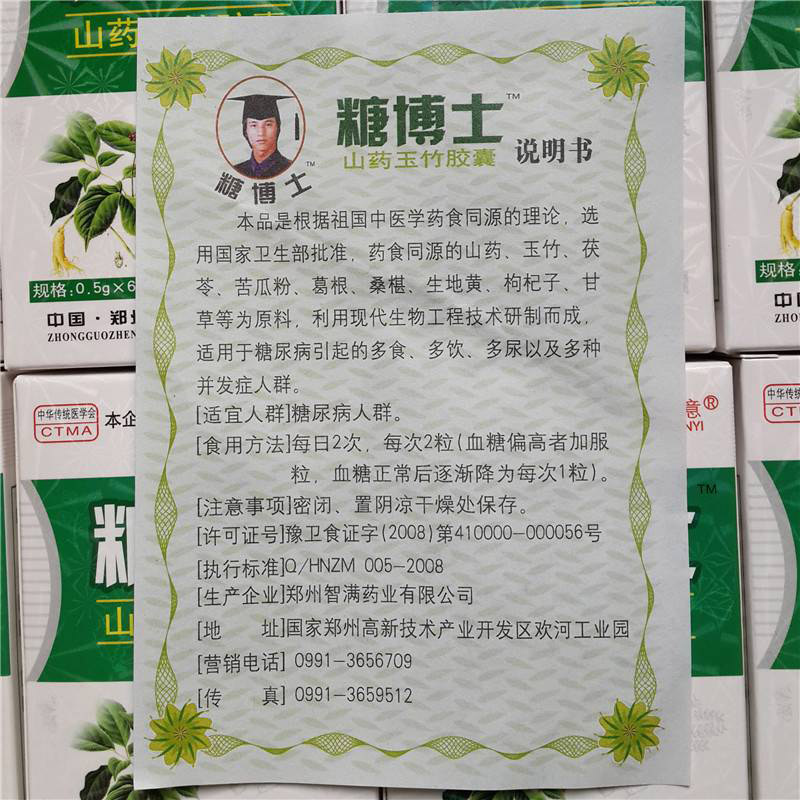 山药
胶囊
糖博士™
山药玉竹胶囊 说明书
糖博士™
本品是根据祖国中医学药食同源的理论，选
用国家卫生部批准，药食同源的山药、玉竹、茯
苓、苦瓜粉、葛根、桑椹、生地黄、枸杞子、甘
草等为原料，利用现代生物工程技术研制而成，
适用于糖尿病引起的多食、多饮、多尿以及多种
并发症人群。
[适宜人群]糖尿病人群。
[食用方法]每日2次，每次2粒(血糖偏高者加服
粒，血糖正常后逐渐降为每次1粒)。
[注意事项]密闭、置阴凉干燥处保存。
[许可证号]豫卫食证字(2008)第410000-000056号
[执行标准]Q/HNZM 005-2008
[生产企业]郑州智满药业有限公司
[地 址]国家郑州高新技术产业开发区欢河工业园
[营销电话] 0991-3656709
[传 真] 0991-3659512
规格:0.5g×6
中国·郑
ZHONGGUOZHEN
规格:
中
ZHON
中华传统医学会
CTMA
本企
意®
NYI
中华传
CT
糖
™
山